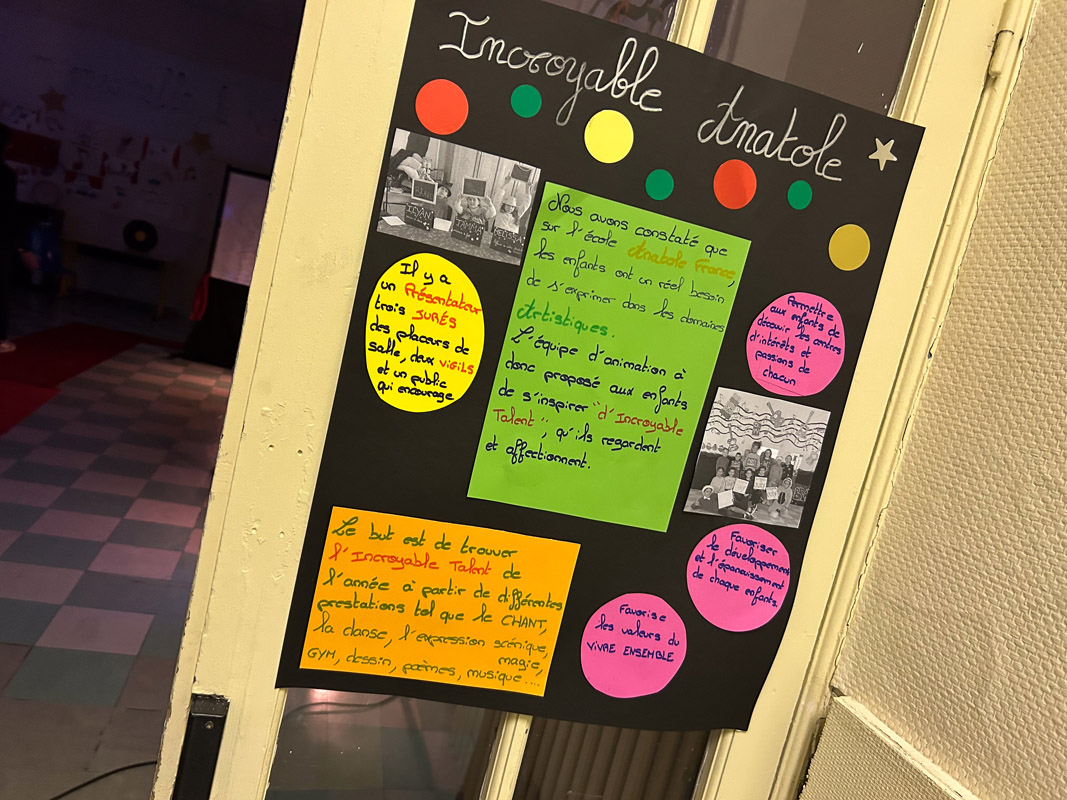 Incroyable Anatole
Nous avons constaté que
sur l'école Anatole France,
les enfants ont un réel besoin
de s'exprimer dans les domaines
Artistiques.
L'équipe d'animation à
donc proposé aux enfants
de s'inspirer "d'Incroyable
Talent", qu'ils regardent
et affectionnent.
Il y a
un Présentateur
trois JURÉS
des placeurs de
salle, deux VIGILS
et un public
qui encourage
Permettre
aux enfants de
découvir les centres
d'intérêts et
passions de
chacun
Le but est de trouver
l'Incroyable Talent de
l'année à partir de différentes
prestations tel que le CHANT,
la danse, l'expression scénique,
magie,
GYM, dessin, poèmes, musique....
Favoriser
le développement
et l'épanouissement
de chaque enfants.
Favorise
les valeurs du
VIVRE ENSEMBLE